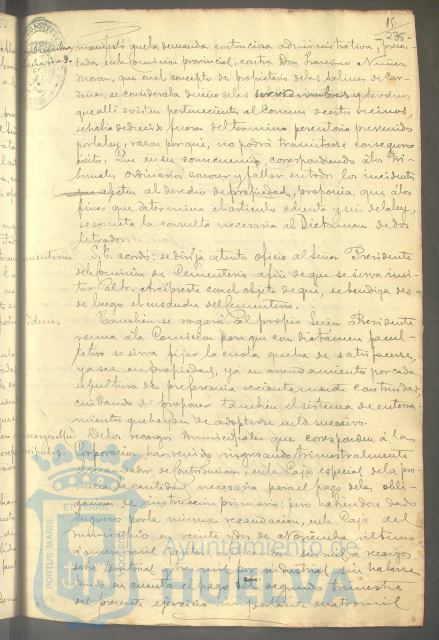 15
235
manifestó que la demanda contenciosa administrativa, presen-
tada en la comision provincial, contra Don Francisco Nuñez
Moran, que en el concepto de propietario de las Salinas de Car-
deñas, se consideraba dueño de las servidumbres y terrenos
que alli existen pertenecientes al comun de estos vecinos,
se habia deducido fuera del termino perentorio prevenido
por la ley, razon por que, no podrá tramitarse con seguro
éxito. Que en su consecuencia, correspondiendo á los tri-
bunales ordinarios conocer y fallar en todos los incidentes
que afecten al derecho de propiedad, proponia, que á los
fines que determina el articulo ochenta y seis de la ley,
se someta la consulta necesaria al Dictamen de dos
letrados.
Cementerio. S. E. acordó, se dirija atento oficio al Señor Presidente
de la Comision de Cementerio á fin de que se sirva invi-
tar al Sr. Arcipreste con el objeto de que, se bendiga des-
de luego el ensanche del Cementerio.
Idem. Tambien se rogará al propio Señor Presidente
reuna á la Comision para que con dictamen facul-
tativo se sirva fijar la cuota que ha de satisfacerse,
ya sea en propiedad, ya en arrendamiento por cada
sepultura de preferencia recientemente construidas,
cuidando de proponer tambien el sistema de enterra-
mientos que hayan de adoptarse en lo sucesivo.
De los recargos municipales que corresponden á la
Corporacion, han venido ingresando trimestralmente
el recaudador de Contribuciones, en la Caja especial de la pro-
vincia la cantidad necesaria para el pago de las obli-
gaciones de instruccion primaria; pero habiendose dado
ingreso por la misma recaudacion, en la Caja del
municipio, en veinte y dos de Noviembre ultimo
á recargos
sobre territorial y por industrial, sin haberse
tenido en cuenta el pago del segundo trimestre
del presente ejercicio importante cuatro mil
Ayuntamiento de
HUELVA
PORTUS MARIS